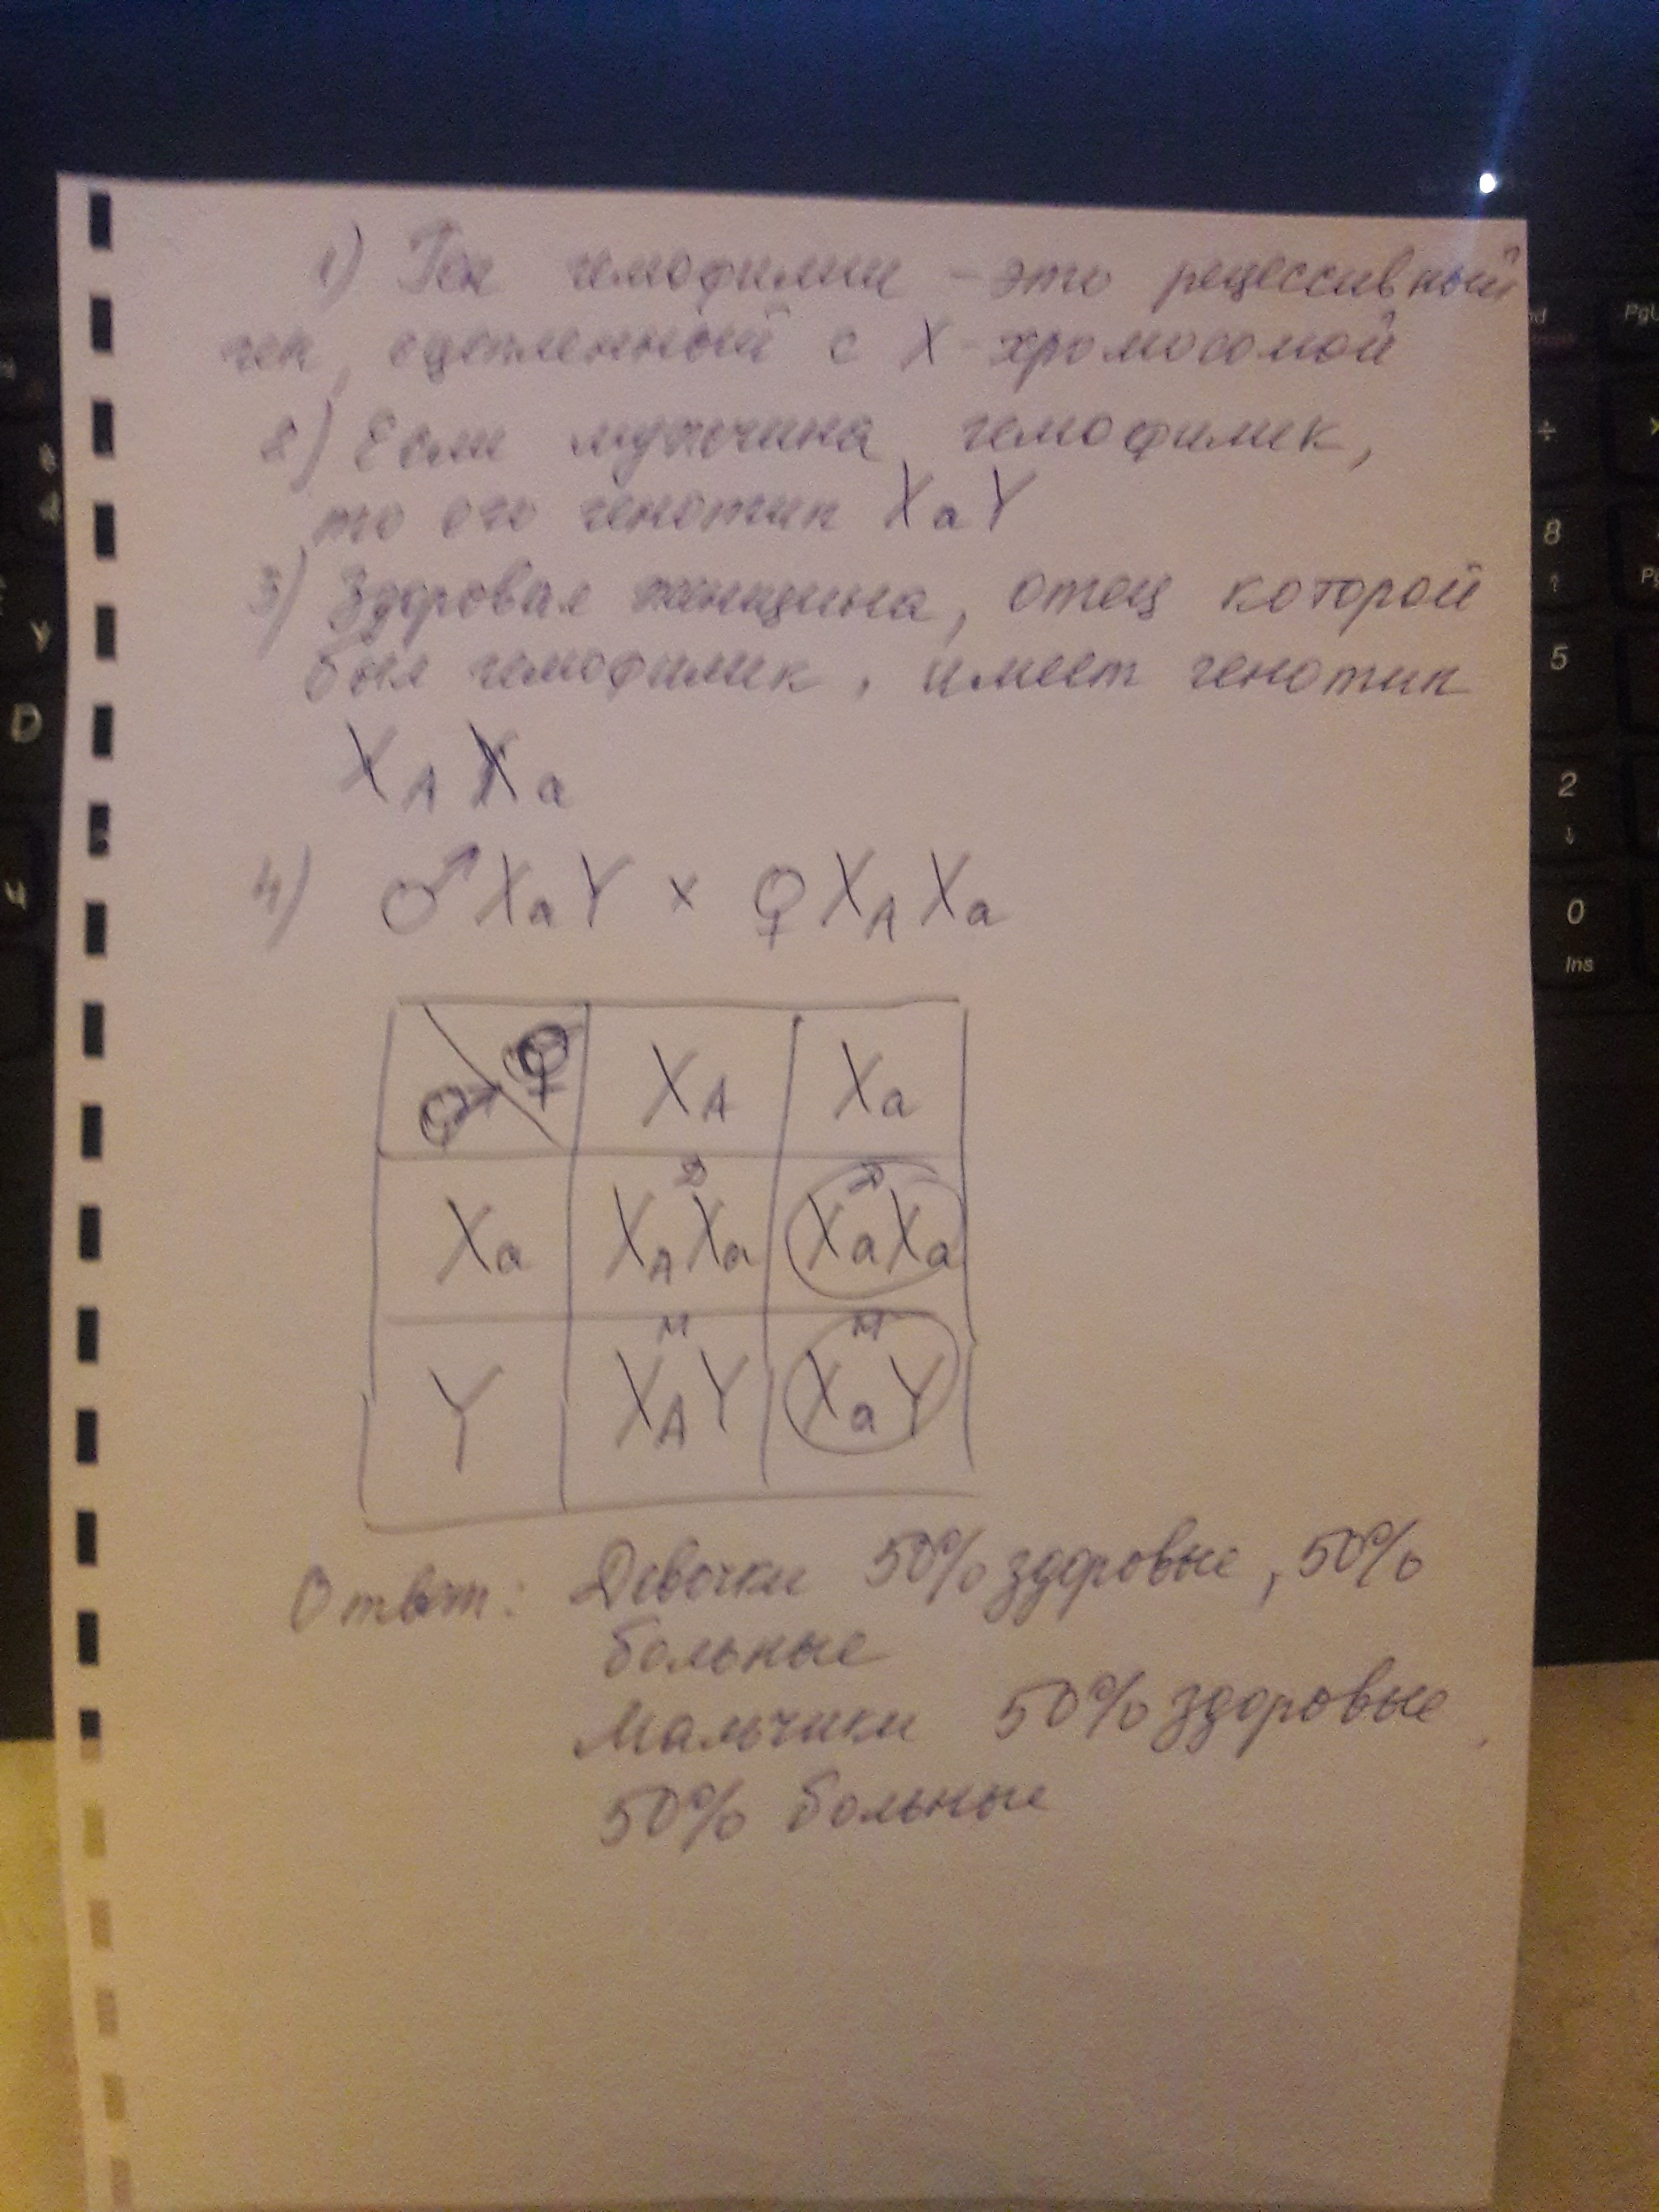 1) Ген гемофилии - это рецессивный
ген, сцепленный с X-хромосомой
2) Если мужчина гемофилик,
то его генотип XaY
3) Здоровая женщина, отец которой
был гемофилик, имеет генотип
XA Xa
4) ♂ XaY × ♀ XA Xa
♂ ♀ XA Xa
Д Д
Xa XAXa XaXa
М М
Y XAY XaY
Ответ: Девочки 50% здоровые, 50%
больные
Мальчики 50% здоровые,
50% больные
PgU
8
↑
5
2
↓
0
Ins
D
Ч